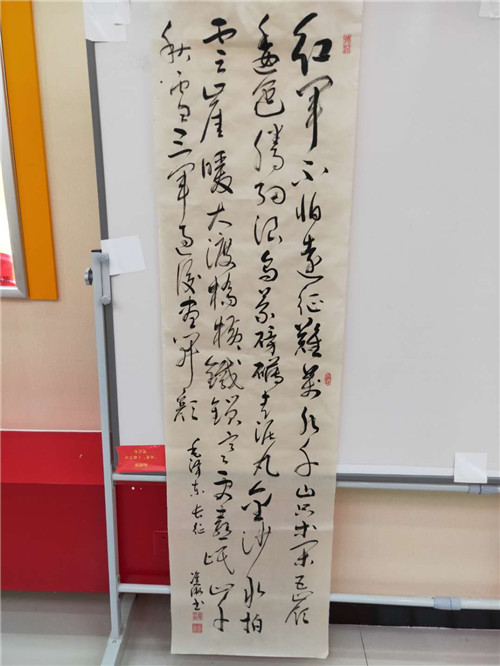 红军不怕遠征難萬水千山只等闲五岭
逶迤腾细浪乌蒙磅礴走泥丸金沙水拍
雲崖暖大渡橋横鐵鎖寒更喜岷山千
秋雪三军过后尽开颜 毛泽东长征
书